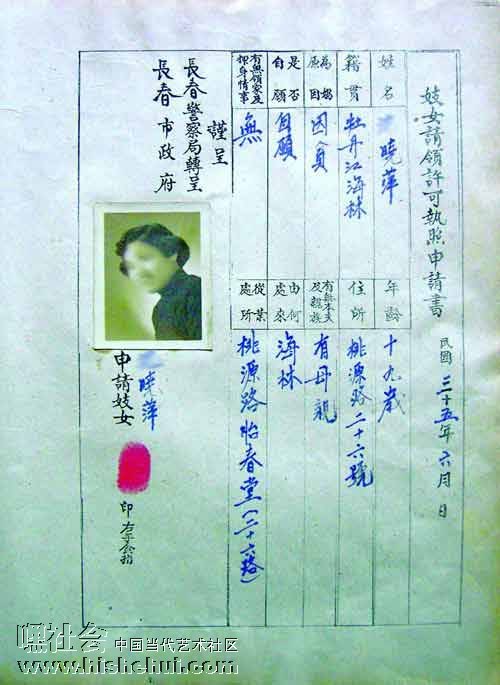 妓女請領許可執照申請書
民國三十五年六月 日
姓名
曉萍
年齡
十九歲
籍貫
牡丹江海林
住所
桃源路二十六號
為娼原因
因貧
有無本夫及親族
有母親
是否自願
自願
由何處來
海林
有無領家及押身情事
無
從業處所
桃源路怡春堂(二十六號)
謹呈
長春警察局轉呈
長春市政府
申請妓女
曉萍
印
右手食指
嘿社会 中国当代艺术社区
www.hishehui.com